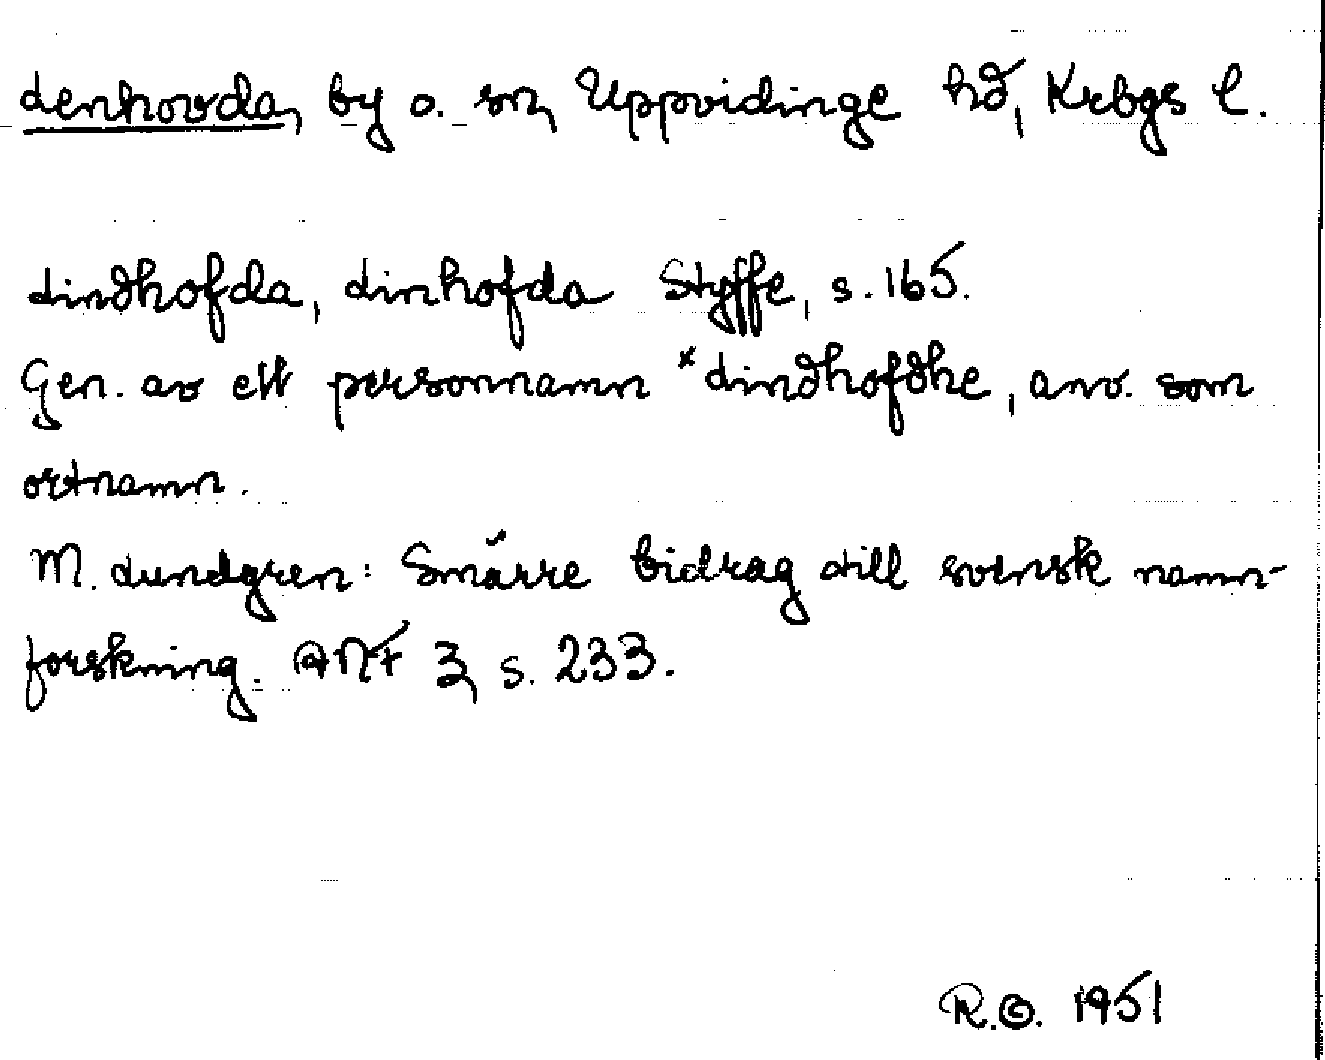 Lenhovda, by o. sn, Uppvidinge hd, Krbgs l.
Lindhofda, Linhofda Styffe, s. 165.
Gen. av ett personnamn *Lindhofdhe, anv. som
ortnamn.
M. Lundgren: Smärre bidrag till svensk namn-
forskning. ANF 3, s. 233.
R.G. 1951